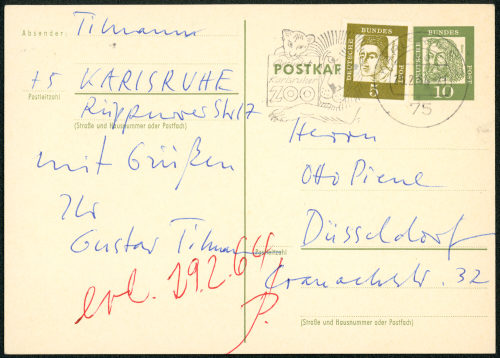 Absender: Tilmann
75 KARLSRUHE
Postleitzahl
Rüppurrerstr 17
(Straße und Hausnummer oder Postfach)
mit Grüßen
Ihr
Gustav Tilmann
erl. 29.2.64
P.
POSTKAR
ZOO
DEUTSCHE BUNDES POST
5
DEUTSCHE BUNDES POST
10
75
Herrn
Otto Piene
Postleitzahl
Düsseldorf
Cranachstr. 32
(Straße und Hausnummer oder Postfach)